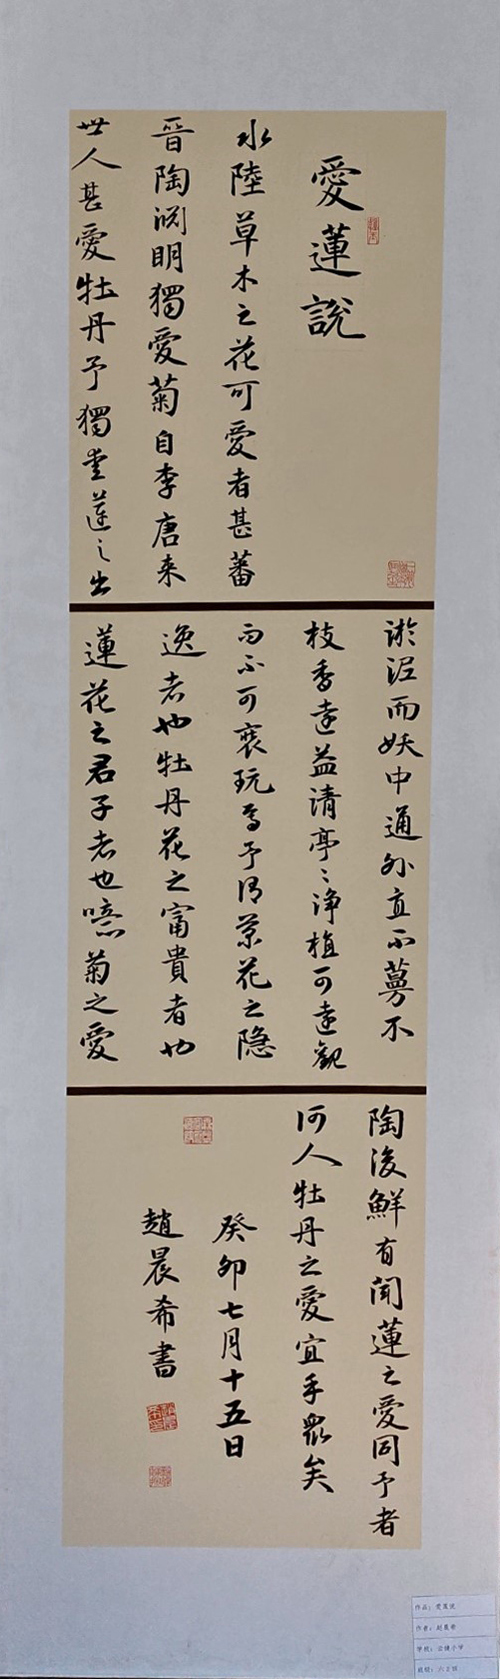 愛蓮說
水陸草木之花可愛者甚蕃
晉陶淵明獨愛菊自李唐来
世人甚愛牡丹予獨愛蓮之出
淤泥而妖中通外直不蔓不
枝香遠益清亭〻淨植可遠觀
而不可褻玩焉予謂菊花之隐
逸者也牡丹花之富貴者也
蓮花之君子者也噫菊之愛
陶後鮮有聞蓮之愛同予者
何人牡丹之愛宜乎眾矣
癸卯七月十五日
趙晨希書
作品：爱莲说
作者：赵晨希
学校：
班级：